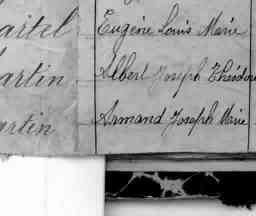 artel Eugène Louis Marie
artin Albert Joseph Théodore
artin Armand Joseph Marie